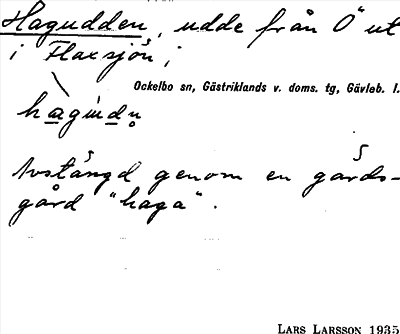 Hagudden, udde från Ö ut
i Flaxsjön;
Ockelbo sn, Gästriklands v. doms. tg, Gävleb. l.
Avstängd genom en gärds-
gård "haga".
LARS LARSSON 1935